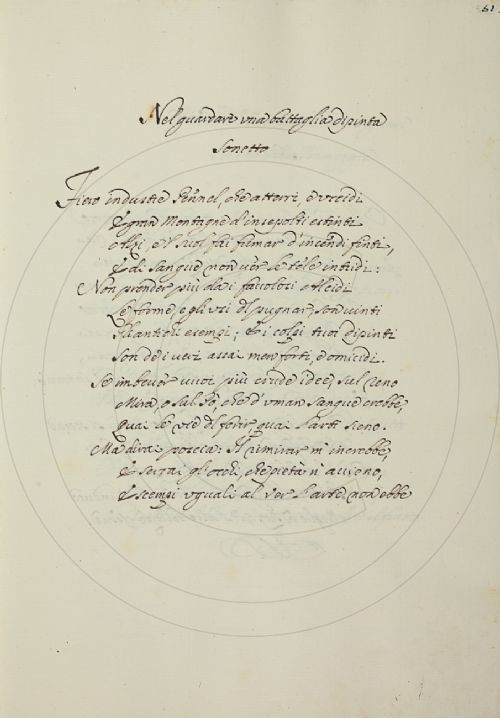 51
Nel guardare vna battaglia dipinta
Sonetto
Fiero industre Pennel, che atterri, e vccidi
E gran Montagne d'insepolti estinti
Alzi, e 'l suol fai fumar d'incendi finti,
E di sangue non ver le tele intridi:
Non prender più dai favolosi Alcidi
Le forme, e gli usi di pugnar; son vinti
Gli antichi esempi; E i colpi tuoi dipinti
Son de i veri assai men forti, e omicidi.
Se imbever vuoi più crude idee, sul Reno
Mira, o sul Pò, che d'vman sangue crebbe,
Quai le vie di ferir, quai l'arti sieno.
Ma dirai poscia: Il rimirar m'increbbe,
E serrai gli occhi, che pietà n'avieno,
E scempi vguali al ver l'arte non ebbe